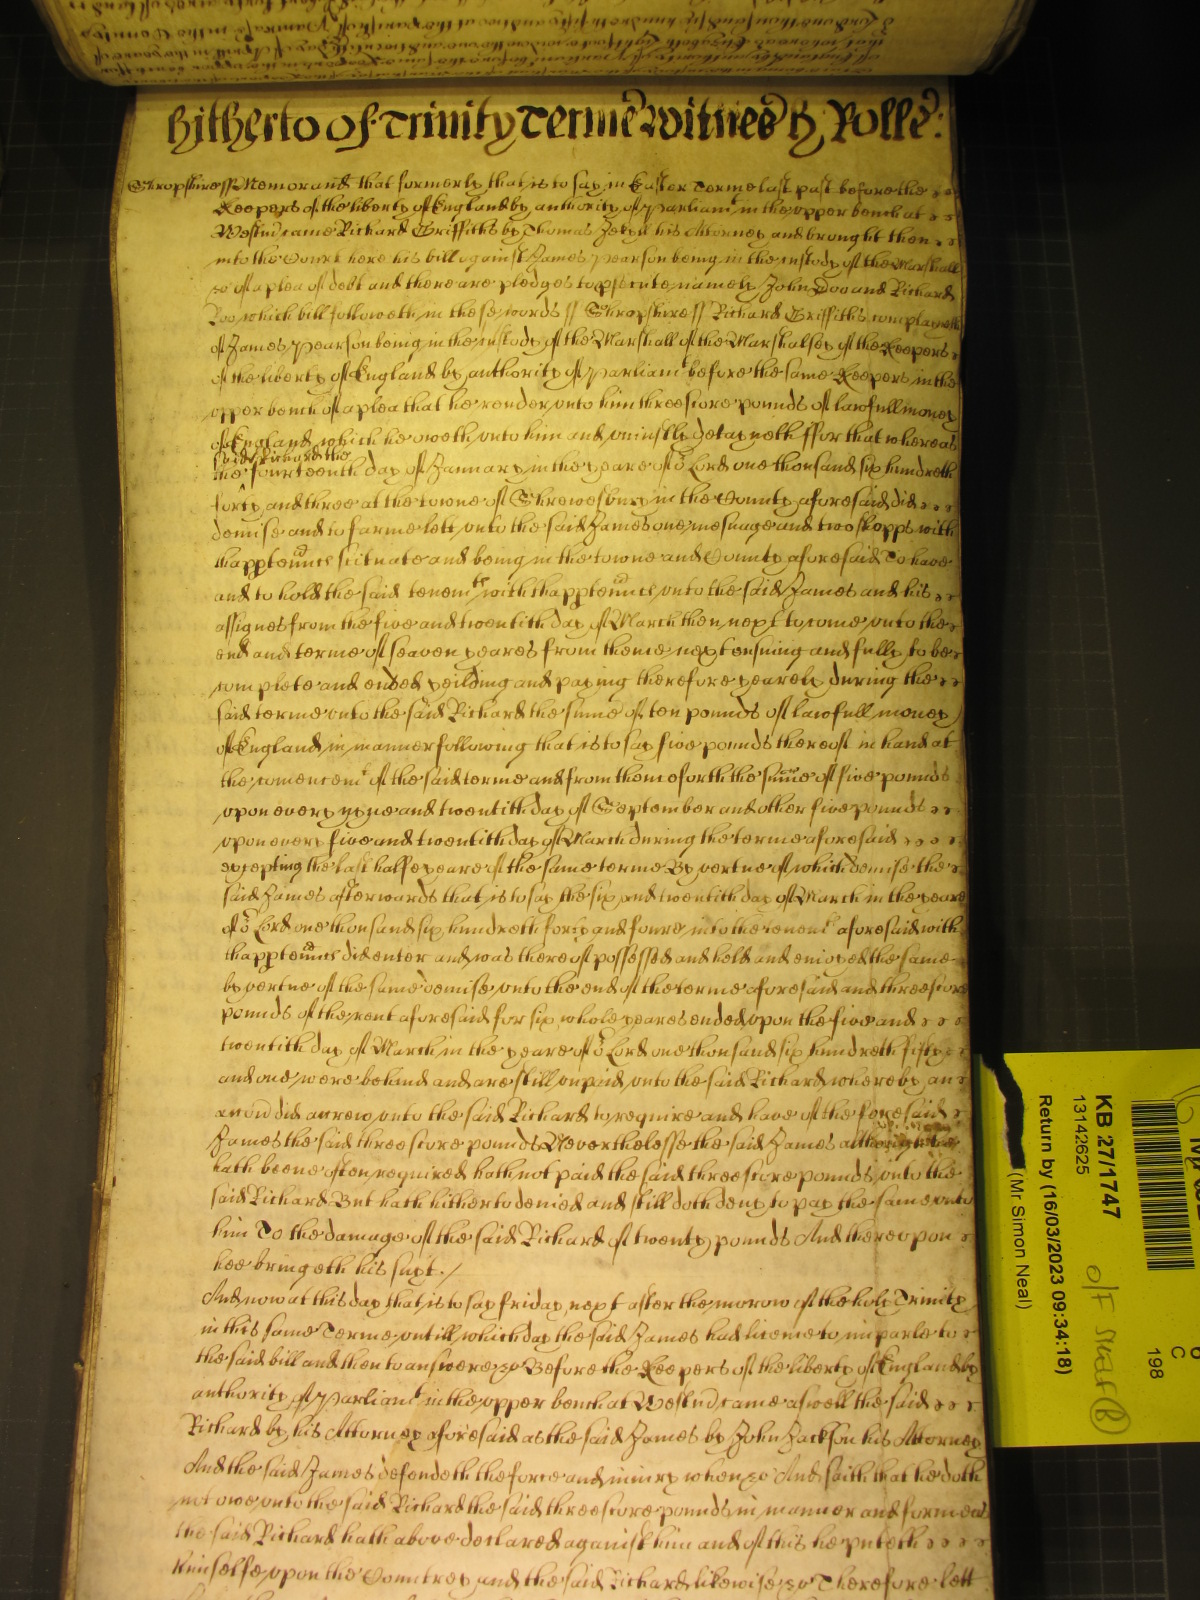 hitherto of Trinity Terme witnes H: Rolle:
Shropshire ss Memorand that formerly that is to say in Easter Terme last past before the
Keepers of the liberty of England by authority of Parliamt in the upper bench at
Westmr came Richard Griffithes by Thomas Jekyll his Attorney and brought then
into the Court here his bill against James Pearson being in the custody of the Marshall
&c of a plea of debt and there are pledges to psecute namely John Doo and Richard
Roo, which bill followeth in these words ss Shropshire ss Richard Griffithes complayneth
of James Pearson being in the custody of the Marshall of the Marshalsey of the Keepers
of the liberty of England by authority of Parliamt before the same Keepers in the
upper bench of a plea that he render unto him threescore pounds of lawfull money
of England which he oweth unto him and uniustly detayneth ffor that whereas
said Richard the
the fourteenth day of January in the yeare of or Lord one thousand six hundreth
forty and three at the towne of Shrewesbury in the County aforesaid did
demise and to farme lett unto the said James one mesuage and two shopps with
thapptennces scituate and being in the towne and County aforesaid To have
and to hold the said tenemts with thapptennces unto the said James and his
assignes from the five and twentith day of March then next to come unto the
end and terme of seaven yeares from thence next ensuing and fully to be
complete and ended yeilding and paying therefore yearely during the
said terme unto the said Richard the sume of ten pounds of lawfull money
of England in manner following that is to say five pounds thereof in hand at
the comencemt of the said terme and from thenceforth the sume of five pounds
upon every nyne and twentith day of September and other five pounds
upon every five and twentith day of March during the terme aforesaid
excepting the last halfe yeare of the same terme By vertue of which demise the
said James afterwards that is to say the six and twentith day of March in the yeare
of or Lord one thousand six hundreth forty and foure into the tenemts aforesaid with
thapptennces did enter and was thereof possessed and held and enioyed the same
by vertue of the same demise unto the end of the terme aforesaid and threescore
pounds of the rent aforesaid for six whole yeares ended upon the five and
twentith day of March in the yeare of or Lord one thousand six hundreth fifty
and one were behind and are still unpaid unto the said Richard whereby an
accon did accrew unto the said Richard to require and have of the foresaid
James the said threescore pounds Neverthelesse the said James although he
hath beene often required hath not paid the said threescore pounds unto the
said Richard But hath hitherto denied and still doth deny to pay the same unto
him To the damage of the said Richard of twenty pounds And thereupon
hee bringeth his suyt./
And now at this day that is to say friday next after the morow of the holy Trinity
in this same Terme untill which day the said James had licence to imparle to
the said bill and then to answere &c Before the Keepers of the liberty of England by
authority of Parliamt in the upper bench at Westmr came aswell the said
Richard by his Attorney aforesaid as the said James by John Jackson his Attorney
And the said James defendeth the force and iniury when &c And saith that he doth
not owe unto the said Richard the said threescore pounds in manner and forme as
the said Richard hath above declared against him and of this he putteth
himselfe upon the Countrey and the said Richard likewise &c Therefore lett
KB 27/1747
13142625
Return by (16/03/2023 09:34:18)
(Mr Simon Neal)
C
198